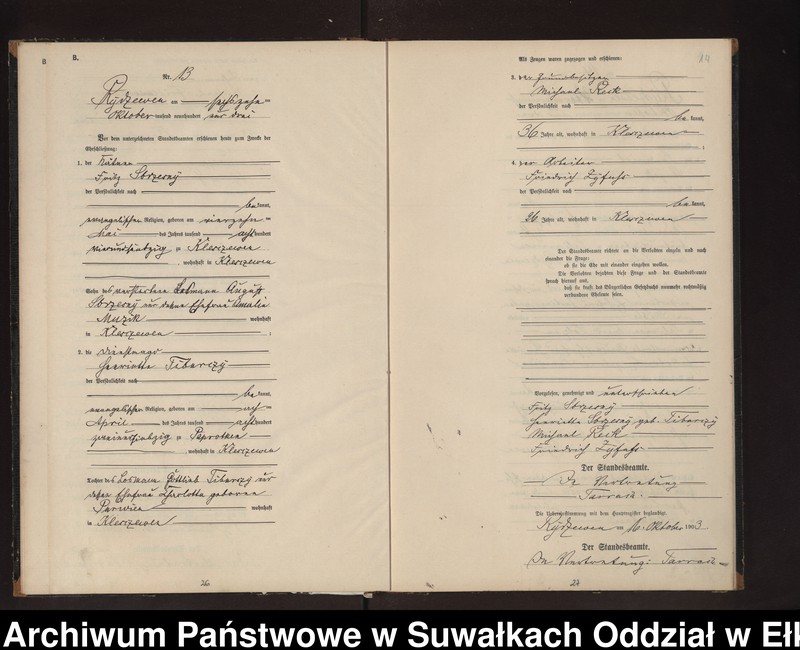 B.
Nr. 13
Rydzewen am sechszehn
Oktober tausend neunhundert und drei
Vor dem unterzeichneten Standesbeamten erschienen heute zum Zwecke der
Eheschließung:
1. der
Fritz Skrzerny
der Persönlichkeit nach
be kannt,
evangelischer Religion, geboren am vierzehn
Mai des Jahres tausend acht hundert
zu Klerszewen
, wohnhaft in Klerszewen
Sohn des verstorbenen Losmann August
Skrzerny und dessen Ehefrau Amalie
Muzik wohnhaft
in Klerszewen ;
2. die Dienstmagd
Henriette Tiborzy
der Persönlichkeit nach
be kannt,
evangelischer Religion, geboren am acht
April des Jahres tausend acht hundert
zweiundsiebzig zu Paprotken
, wohnhaft in Klerszewen
Tochter des Losmann Gottlieb Tiborzy und
dessen Ehefrau Charlotte geborene
wohnhaft
in Klerszewen
26
Als Zeugen waren zugezogen und erschienen:
3. der Grundbesitzer
Michael Reck
der Persönlichkeit nach
be kannt,
36 Jahre alt, wohnhaft in Klerszewen
;
4. der Arbeiter
Friedrich
der Persönlichkeit nach
be kannt,
26 Jahre alt, wohnhaft in Klerszewen
Der Standesbeamte richtete an die Verlobten einzeln und nach
einander die Frage:
ob sie die Ehe mit einander eingehen wollen.
Die Verlobten bejahten diese Frage und der Standesbeamte
sprach hierauf aus,
daß sie kraft des Bürgerlichen Gesetzbuchs nunmehr rechtmäßig
verbundene Eheleute seien.
Vorgelesen, genehmigt und unterschrieben
Fritz Skrzerny
Henriette Skrzerny geb. Tiborzy
Michael Reck
Friedrich
Der Standesbeamte.
In Vertretung
Die Uebereinstimmung mit dem Hauptregister beglaubigt.
Rydzewen am 16. Oktober 1903
Der Standesbeamte.
In Vertretung:
27
Archiwum Państwowe w Suwałkach Oddział w Ełk